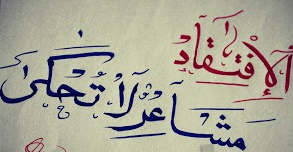 الإفتقاد
مشاعر لا تُحكى